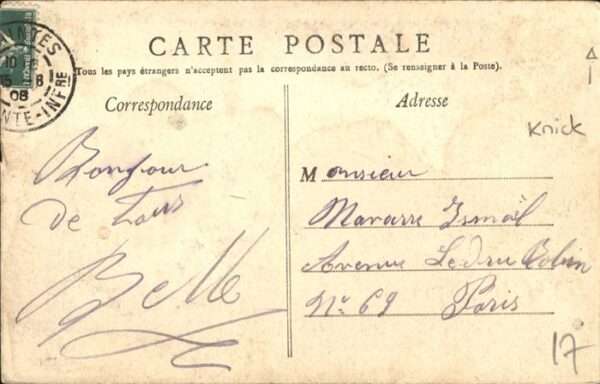 NANTES
10
15 8
08
CARTE POSTALE
Tous les pays étrangers n'acceptent pas la correspondance au recto. (Se renseigner à la Poste).
Correspondance
Adresse
Knick
Bonjour
de tous
Monsieur
Navarre Ismaël
Avenue Ledru Rolin
No 69 Paris
17